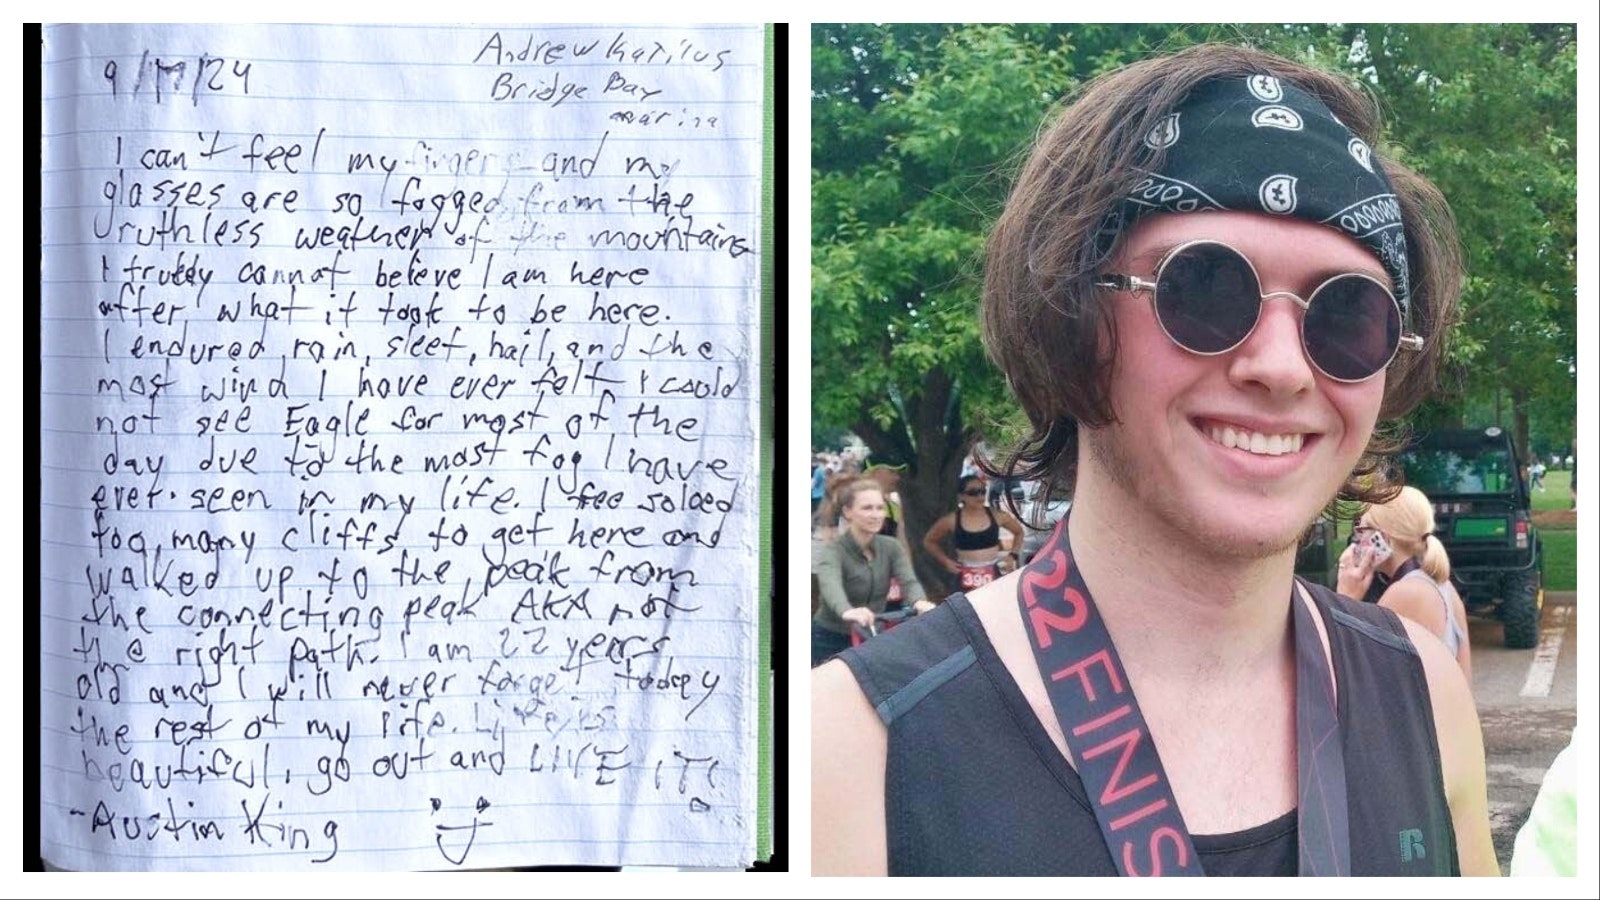 9/17/24
Andrew
Bridge Bay
marina
I can't feel my fingers and my
glasses are so fogged from the
ruthless weather of the mountains
I truly cannot believe I am here
after what it took to be here.
I endured rain, sleet, hail, and the
most wind I have ever felt I could
not see Eagle for most of the
day due to the most fog I have
ever seen in my life. I free soloed
too many cliffs to get here and
walked up to the peak from
the connecting peak AKA not
the right path. I am 22 years
old and I will never forget today
the rest of my life. Life is
beautiful, go out and LIVE IT!
-Austin King
22 FINIS
390
R